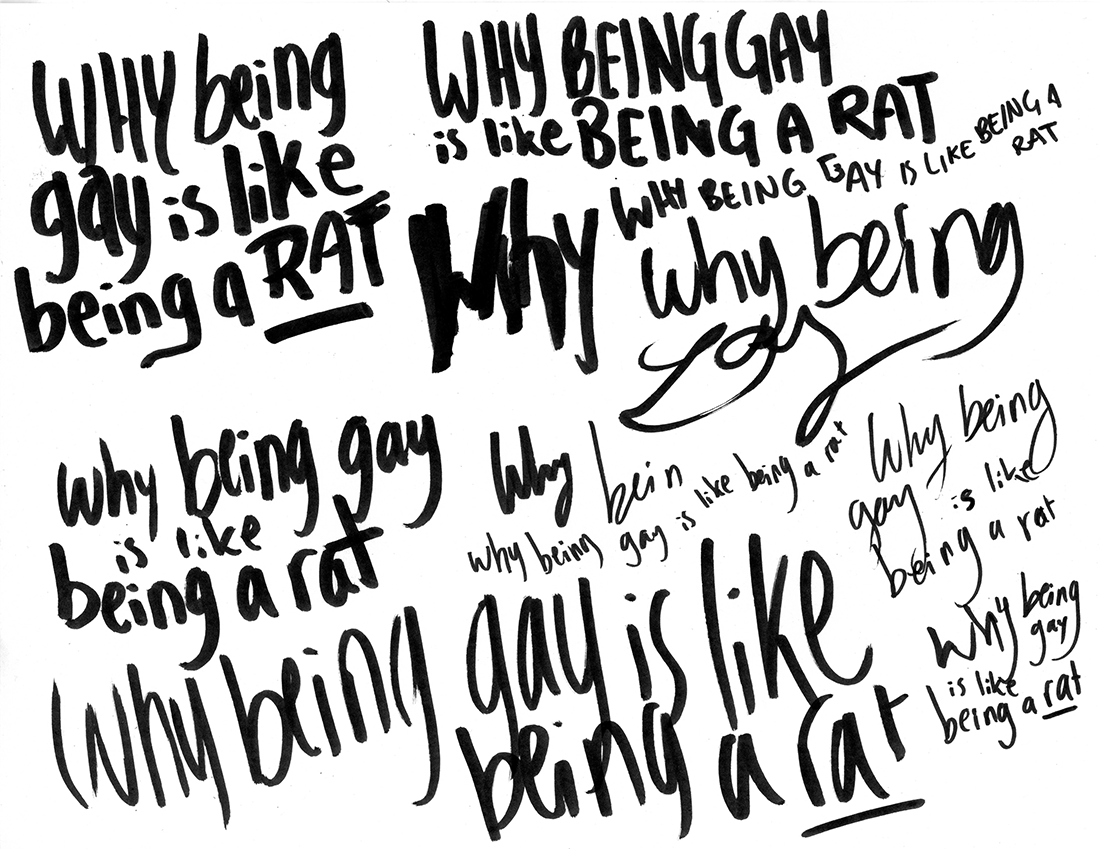 WHY being
gay is like
being a RAT
WHY BEING GAY
is like BEING A RAT
WHY BEING GAY IS LIKE BEING A
RAT
Why
why being
gay
why being gay
is like
being a rat
Why bein
why being gay is like being a rat
Why being
gay is like
being a rat
why being gay is like
being a rat
why being
gay
is like
being a rat